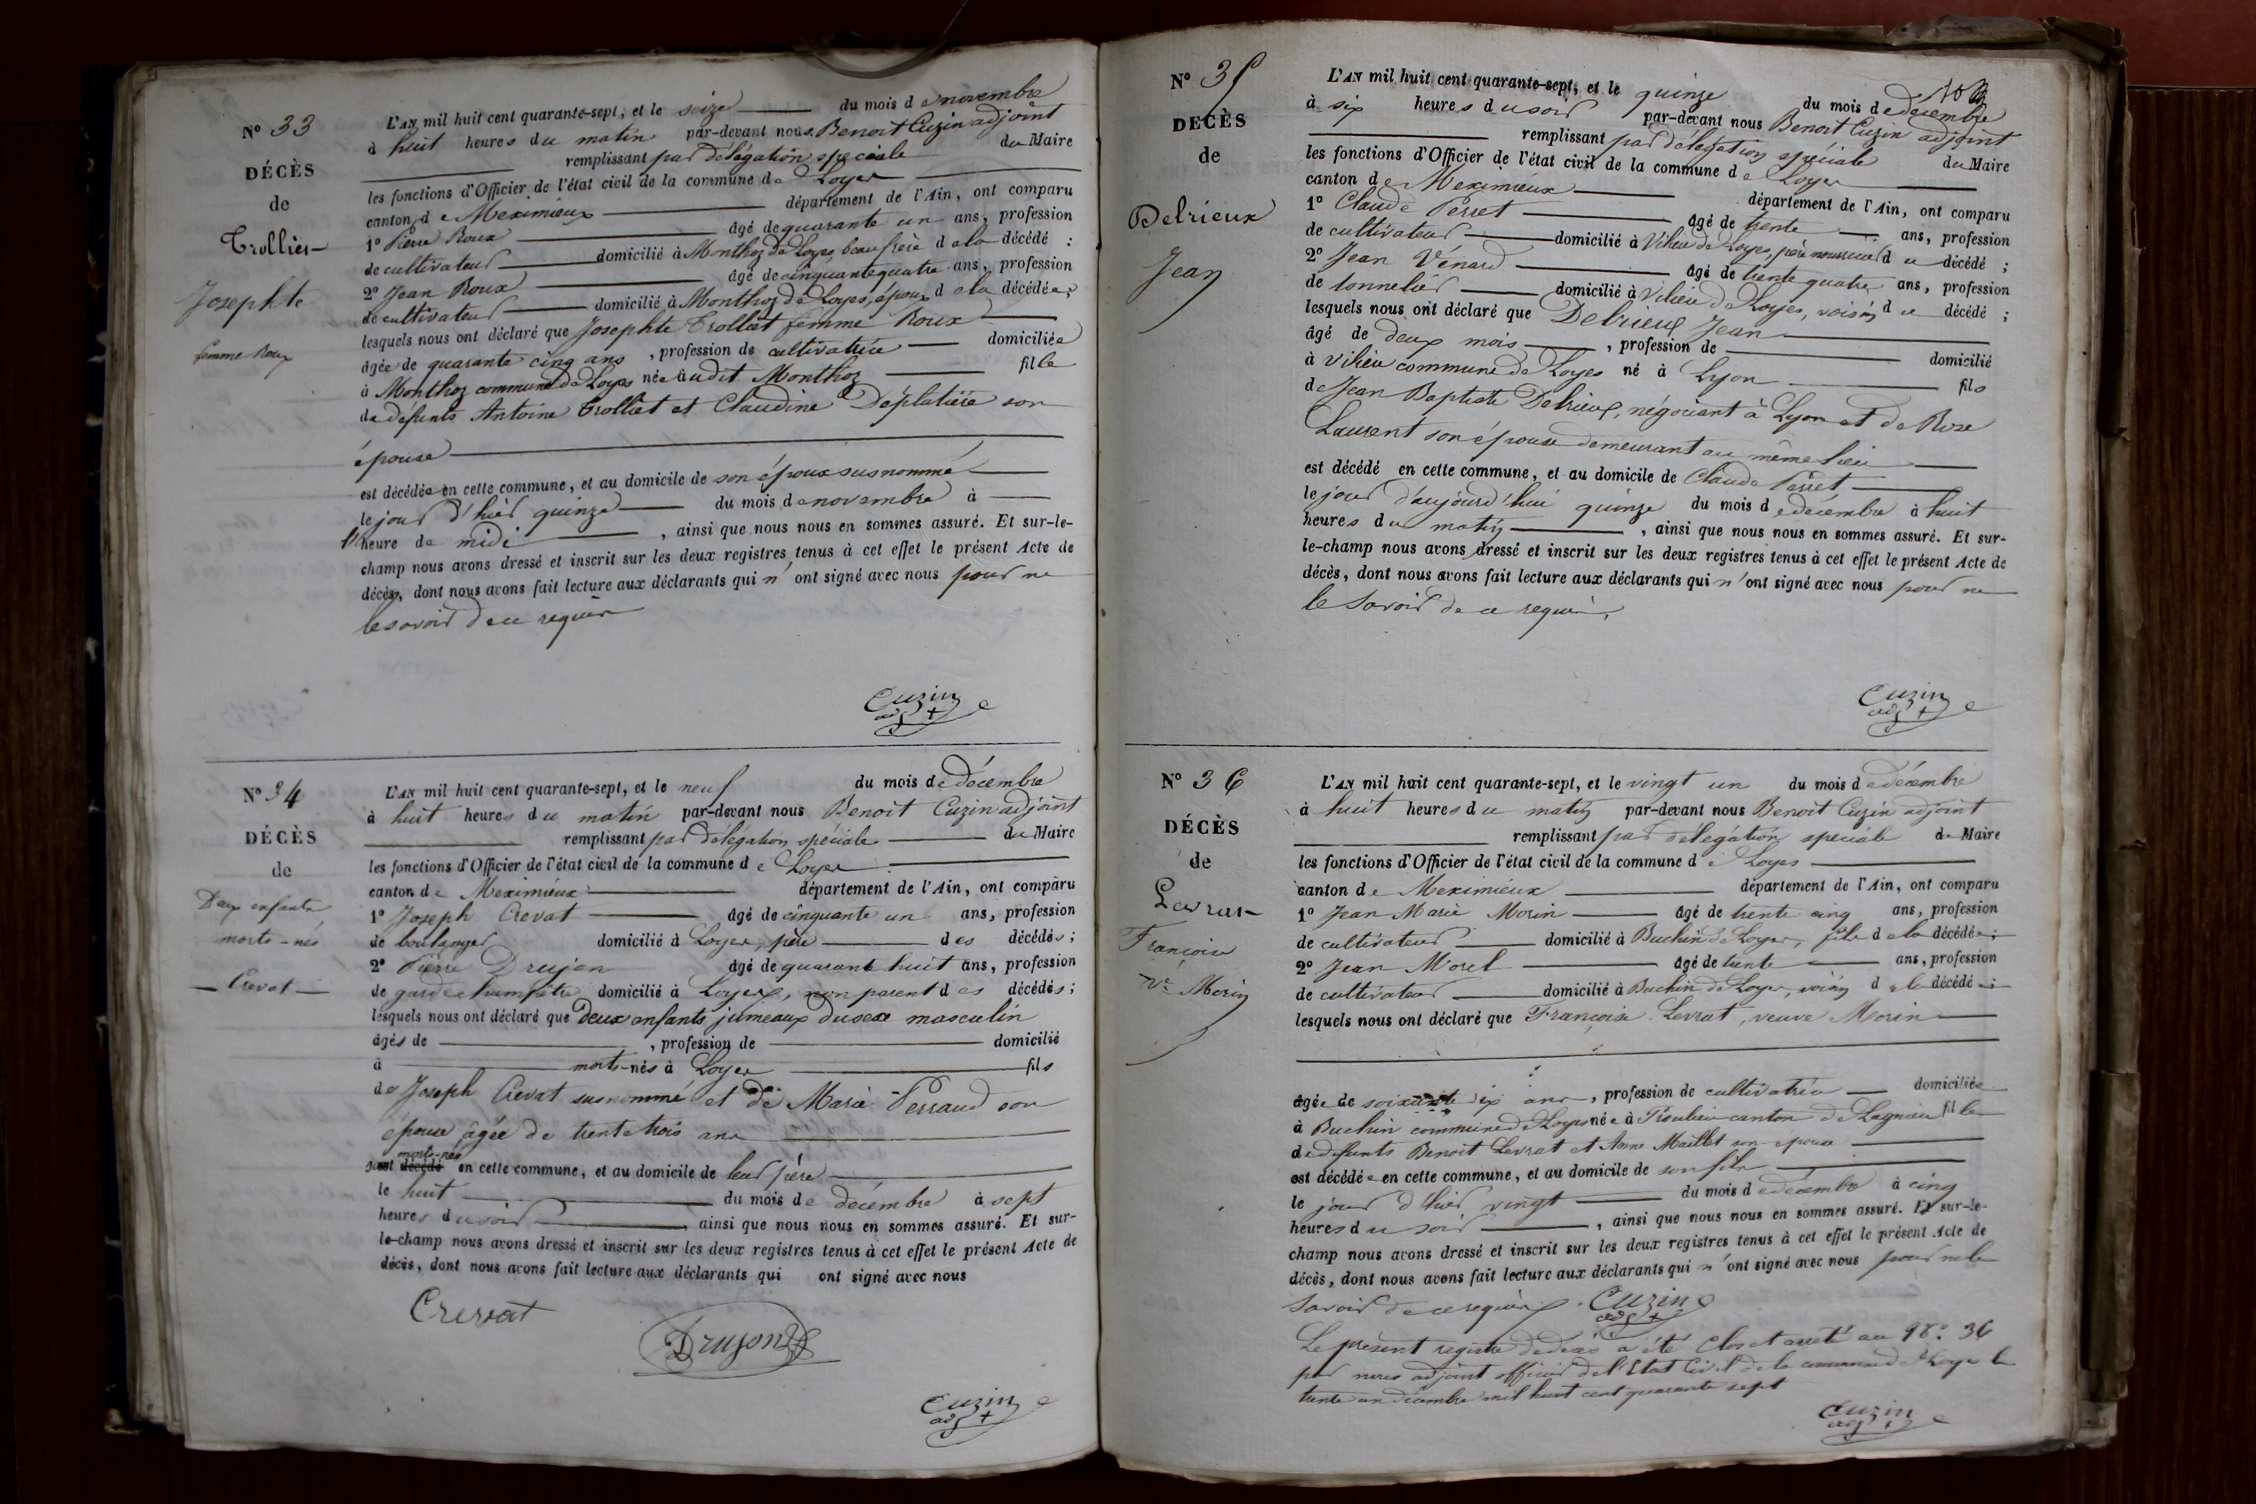 N° 33
DÉCÈS
de
Trolliet
Josephte
femme Roux
L'AN mil huit cent quarante-sept, et le seize du mois de novembre
à huit heures du matin par-devant nous Benoit Cuzin adjoint
remplissant par délégation spéciale du Maire
les fonctions d'Officier de l'état civil de la commune de Loyes
canton de Meximieux département de l'Ain, ont comparu
1° Pierre Roux âgé de quarante un ans, profession
de cultivateur domicilié à Monthoz de Loyes, beau frère de la décédée :
2° Jean Roux âgé de cinquante quatre ans, profession
de cultivateur domicilié à Monthoz de Loyes, époux de la décédée ;
lesquels nous ont déclaré que Josephte Trolliet femme Roux
âgée de quarante cinq ans, profession de cultivatrice domiciliée
à Monthoz commune de Loyes née audit Monthoz fille
de défunts Antoine Trolliet et Claudine Déplatière son
épouse
est décédée en cette commune, et au domicile de son époux susnommé
le jour d'hier quinze du mois de novembre à
l'heure de midi, ainsi que nous nous en sommes assuré. Et sur-le-
champ nous avons dressé et inscrit sur les deux registres tenus à cet effet le présent Acte de
décès, dont nous avons fait lecture aux déclarants qui n'ont signé avec nous pour ne
le savoir de ce requis
Cuzin
adjt
N° 34
DÉCÈS
de
Deux enfants
morts-nés
Crevat
L'AN mil huit cent quarante-sept, et le neuf du mois de décembre
à huit heures du matin par-devant nous Benoit Cuzin adjoint
remplissant par délégation spéciale du Maire
les fonctions d'Officier de l'état civil de la commune de Loyes
canton de Meximieux département de l'Ain, ont comparu
1° Joseph Crevat âgé de cinquante un ans, profession
de boulanger domicilié à Loyes, père des décédés ;
2° Pierre Drujon âgé de quarante huit ans, profession
de garde champêtre domicilié à Loyes, non parent des décédés ;
lesquels nous ont déclaré que Deux enfants jumeaux du sexe masculin
âgés de , profession de domicilié
à morts-nés à Loyes fils
de Joseph Crevat susnommé et de Marie Perraud son
épouse âgée de trente trois ans
morts-nés
sont décédé en cette commune, et au domicile de leur père
le huit du mois de décembre à sept
heures du soir, ainsi que nous nous en sommes assuré. Et sur-
le-champ nous avons dressé et inscrit sur les deux registres tenus à cet effet le présent Acte de
décès, dont nous avons fait lecture aux déclarants qui ont signé avec nous
Crevat
Drujon
Cuzin
adjt
N° 35
DÉCÈS
de
Delrieux
Jean
L'AN mil huit cent quarante-sept, et le quinze du mois de décembre
à six heures du soir par-devant nous Benoit Cuzin adjoint
remplissant par délégation spéciale du Maire
les fonctions d'Officier de l'état civil de la commune de Loyes
canton de Meximieux département de l'Ain, ont comparu
1° Claude Perret âgé de trente ans, profession
de cultivateur domicilié à Vilieu de Loyes, père nourricier du décédé ;
2° Jean Vénard âgé de trente quatre ans, profession
de tonnelier domicilié à Vilieu de Loyes, voisin du décédé ;
lesquels nous ont déclaré que Delrieux Jean
âgé de deux mois, profession de domicilié
à Vilieu commune de Loyes né à Lyon fils
de Jean Baptiste Delrieux, négociant à Lyon et de Rose
Laurent son épouse demeurant au même lieu
est décédé en cette commune, et au domicile de Claude Perret
le jour d'aujourd'hui quinze du mois de décembre à huit
heures du matin, ainsi que nous nous en sommes assuré. Et sur-
le-champ nous avons dressé et inscrit sur les deux registres tenus à cet effet le présent Acte de
décès, dont nous avons fait lecture aux déclarants qui n'ont signé avec nous pour ne
le savoir de ce requis.
Cuzin
adjt
N° 36
DÉCÈS
de
Levrat
Françoise
Ve Morin
L'AN mil huit cent quarante-sept, et le vingt un du mois de décembre
à huit heures du matin par-devant nous Benoit Cuzin adjoint
remplissant par délégation spéciale du Maire
les fonctions d'Officier de l'état civil de la commune de Loyes
canton de Meximieux département de l'Ain, ont comparu
1° Jean Marie Morin âgé de trente cinq ans, profession
de cultivateur domicilié à Buchin de Loyes, fils de la décédée ;
2° Jean Morel âgé de trente ans, profession
de cultivateur domicilié à Buchin de Loyes, voisin de la décédée ;
lesquels nous ont déclaré que Françoise Levrat, veuve Morin
âgée de soixante six ans, profession de cultivatrice domiciliée
à Buchin commune de Loyes née à canton de Lagnieu fille
de défunts Benoit Levrat et Anne Maillet son épouse
est décédée en cette commune, et au domicile de son fils
le jour d'hier vingt du mois de décembre à cinq
heures du soir, ainsi que nous nous en sommes assuré. Et sur-le-
champ nous avons dressé et inscrit sur les deux registres tenus à cet effet le présent Acte de
décès, dont nous avons fait lecture aux déclarants qui n'ont signé avec nous pour ne le
savoir de ce requis. Cuzin
adjt
Le présent registre de décès a été clos et arrêté au N° 36
par nous adjoint officier de l'Etat Civil de la commune de Loyes le
trente un décembre mil huit cent quarante sept
Cuzin
adjt